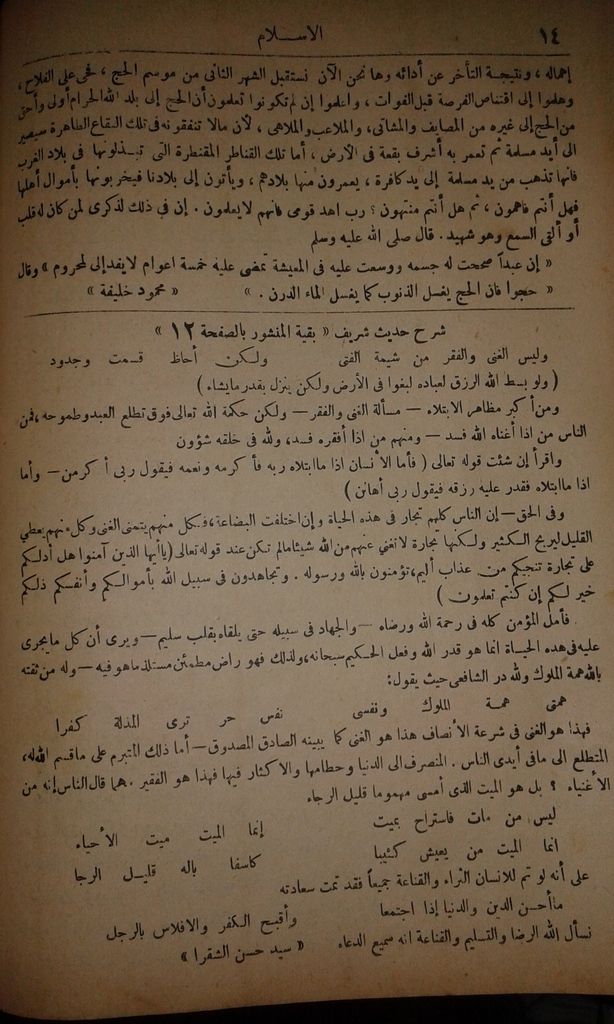 ١٤
الاسلام
إهماله ، ونتيجة التأخر عن أدائه وها نحن الآن نستقبل الشهر الثانى من موسم الحج ، فحى على الفلاح ،
وهلموا إلى اقتناص الفرصة قبل الفوات ، واعلموا إن لم تكونوا تعلمون أن الحج إلى بلد الله الحرام أولى وأحق
من الحج إلى غيره من المصايف والمشاتى ، والملاعب والملاهى ، لأن مالا تنفقونه فى تلك البقاع الطاهرة سيصير
الى أيد مسلمة ثم تعمر به أشرف بقعة فى الأرض ، أما تلك القناطر المقنطرة التى تبذلونها فى بلاد الغرب
فانها تذهب من يد مسلمة إلى يد كافرة ، يعمرون منها بلادهم ، ويأتون إلى بلادنا فيخربونها بأموال أهلها
فهل أنتم فاهمون ، ثم هل أنتم منتهون ؟ رب اهد قومى فانهم لايعلمون . إن فى ذلك لذكرى لمن كان له قلب
أو ألقى السمع وهو شهيد . قال صلى الله عليه وسلم
« إن عبداً صححت له جسمه ووسعت عليه فى المعيشة تمضى عليه خمسة اعوام لا يفد إلى لمحروم » وقال
« حجوا فان الحج يغسل الذنوب كما يغسل الماء الدرن . » « محمود خليفة »
شرح حديث شريف « بقية المنشور بالصفحة ١٢ »
وليس الغنى والفقر من شيمة الفتى ولكن أحاظ قسمت وجدود
( ولو بسط الله الرزق لعباده لبغوا فى الأرض ولكن ينزل بقدر مايشاء )
ومن أكبر مظاهر الابتلاء — مسألة الغنى والفقر — ولكن حكمة الله تعالى فوق تطلع العبد وطموحه ، فمن
الناس من اذا أغناه الله فسد — ومنهم من اذا أفقره فسد ، ولله فى خلقه شؤون
واقرأ إن شئت قوله تعالى ( فأما الأنسان اذا ماابتلاه ربه فأكرمه ونعمه فيقول ربى أكرمن — وأما
اذا ماابتلاه فقدر عليه رزقه فيقول ربى أهانن )
وفى الحق — إن الناس كلهم تجار فى هذه الحياة وإن اختلفت البضاعة ، فكل منهم يتمنى الغنى وكل منهم يعطي
القليل ليربح الكثير ولكنها تجارة لاتغنى عنهم من الله شيئا مالم تكن عند قوله تعالى ( ياأيها الذين آمنوا هل أدلكم
على تجارة تنجيكم من عذاب أليم ، تؤمنون بالله ورسوله . وتجاهدون فى سبيل الله بأموالكم وأنفسكم ذلكم
خير لكم إن كنتم تعلمون )
فأمل المؤمن كله فى رحمة الله ورضاه — والجهاد فى سبيله حتى يلقاه بقلب سليم — ويرى أن كل مايجرى
عليه فى هذه الحياة انما هو قدر الله وفعل الحكيم سبحانه ، ولذلك فهو راض مطمئن مستلذ ماهو فيه — وله من ثقته
بالله همة الملوك ولله در الشافعى حيث يقول :
همتى همة الملوك ونفسى نفس حر ترى المذلة كفرا
فهذا هو الغنى فى شرعة الأنصاف هذا هو الغنى كما يبينه الصادق المصدوق — أما ذلك المتبرم على ماقسم الله له ،
المتطلع الى مافى أيدى الناس . المنصرف الى الدنيا وحطامها والاكثار فيها فهذا هو الفقير . مهما قال الناس إنه من
الأغنياء ؟ بل هو الميت الذى أمسى مهموما قليل الرجاء
ليس من مات فاستراح بميت إنما الميت ميت الأحياء
انما الميت من يعيش كئيبا كاسفا باله قليل الرجا
على أنه لو تم للانسان الثراء والقناعة جميعاً فقد تمت سعادته
ماأحسن الدين والدنيا إذا اجتمعا وأقبح الكفر والافلاس بالرجل
نسأل الله الرضا والتسليم والقناعة انه سميع الدعاء « سيد حسن الشقرا »